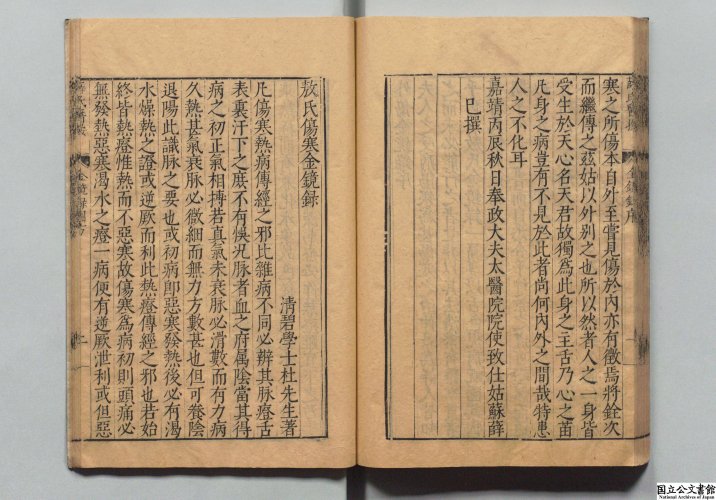 寒之所傷本自外至嘗見傷於內亦有徵焉將銓次
而繼傳之茲姑以外別之也所以然者人之一身皆
受生於天心名天君故獨爲此身之王舌乃心之苗
凡身之病豈有不見於此者尚何內外之間哉特患
人之不化耳
嘉靖丙辰秋日奉政大夫太醫院院使致仕姑蘇薛
巳撰
敖氏傷寒金鏡錄
清碧學士杜先生著
凡傷寒熱病傳經之邪比雜病不同必辨其脉證舌
表裏汗下之庶不有悞況脉者血之府属陰當其得
病之初正氣相搏若真氣未衰脉必滑數而有力病
久熱甚氣衰脉必微細而無力方數甚也但可養陰
退陽此識脉之要也或初病即惡寒發熱後必有渴
水燥熱之證或逆厥而利此熱證傳經之邪也若始
終皆熱證惟熱而不惡寒故傷寒爲病初則頭痛必
無發熱惡寒渴水之證一病便有逆厥泄利或但惡
国立公文書館
National Archives of Japan